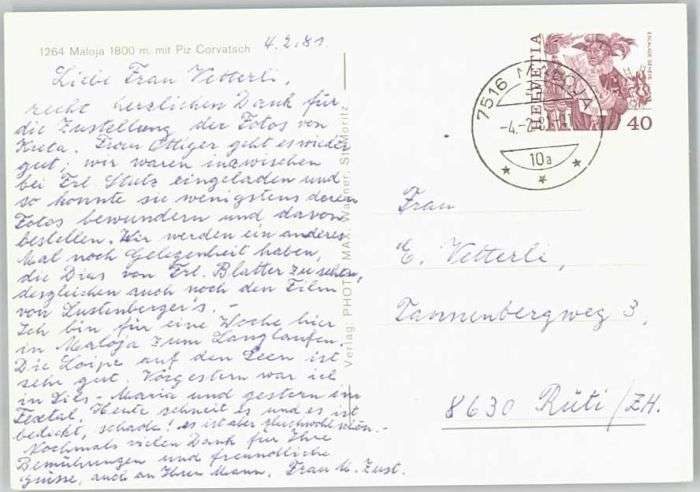 1264 Maloja 1800 m. mit Piz Corvatsch
4.2.81.
Liebe Frau Vetterli,
recht herzlichen Dank für
die Zustellung der Fotos von
Kreta. Frau Ottiger geht es wieder
gut; wir waren inzwischen
bei Frl. Stutz eingeladen und
so konnte sie wenigstens deren
Fotos bewundern und davon
bestellen. Wir werden ein anderes
Mal noch Gelegenheit haben,
die Dias von Frl. Blatter zu sehen,
desgleichen auch noch den Film
von Lustenberger's. –
Ich bin für eine Woche hier
in Maloja zum Langlaufen.
Die Loipe auf den Seen ist
sehr gut. Vorgestern war ich
in Sils-Maria und gestern im
Fextal. Heute schneit es und es ist
bedeckt, schade! Es ist aber gleichwohl schön. –
Nochmals vielen Dank für Ihre
Bemühungen und freundliche
Grüsse, auch an Ihren Mann. Frau M. Zust.
Verlag: PHOTO MAX Wagner, St. Moritz
7516 MALOJA
-4.-2.
10a
HELVETIA
40
Frau
E. Vetterli,
Tannenbergweg 3,
8630 Rüti/ZH.